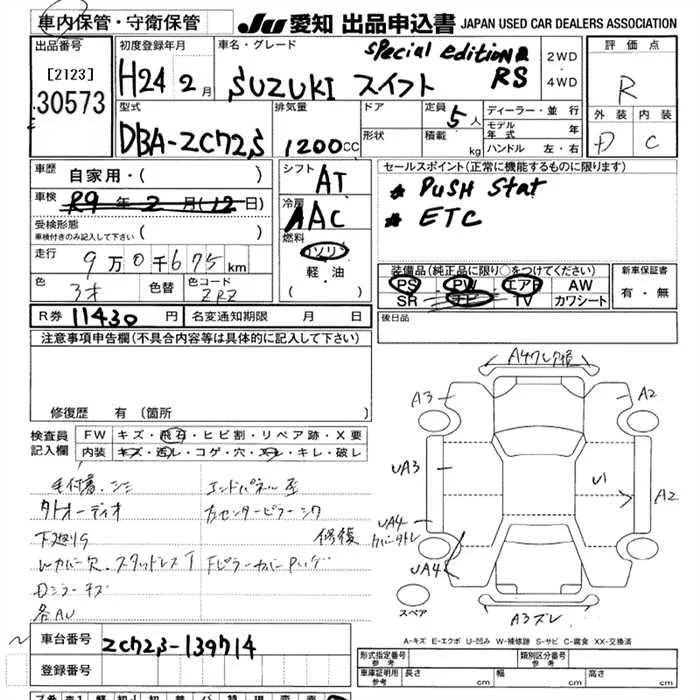 車内保管・守衛保管
JU 愛知 出品申込書 JAPAN USED CAR DEALERS ASSOCIATION
出品番号
[2123]
30573
初度登録年月
H24 2月
車名・グレード
SUZUKI スイフト
Special edition
RS
2WD
4WD
評価点
R
型式
DBA-ZC72S
排気量
1200cc
ドア
形状
定員 5人
積載 kg
ディーラー・並行
モデル年式 年
ハンドル 左・右
外装 内装
D C
車歴 自家用・( )
車検 R9年2月(12日)
受検形態
車検付きのみ記入して下さい ( )
走行 9万0千675km
色
色替
色コード
ZRZ
シフト
AT
冷房
AAC
燃料
ガソリン
軽・油
セールスポイント(正常に機能するものに限ります)
* PUSH Stat
* ETC
装備品(純正品に限り○をつけてください)
PS PW エアB AW
SR ナビ TV カワシート
新車保証書
有・無
R券 11430円
名変通知期限 月 日
後日品
注意事項申告欄(不具合内容等は具体的に記入して下さい)
修復歴 有(箇所
検査員
記入欄
FW キズ・飛石・ヒビ割・リペア跡・X要
内装 キズ・汚レ・コゲ・穴・スレ・キレ・破レ
毛付着・シミ
外オーディオ
下廻りG
Wカバー欠・スタッドレス
各AU
修復
A3
A2
UA3
U1
A2
UA4
UA4
A3ズレ
スペア
A-キズ E-エクボ U-凹み W-補修跡 S-サビ C-腐食 XX-交換済
車台番号
ZC72S-139714
登録番号
形式指定番号
参考
類別区分番号
参考
車庫証明用
参考
長さ cm
幅 cm
高さ cm